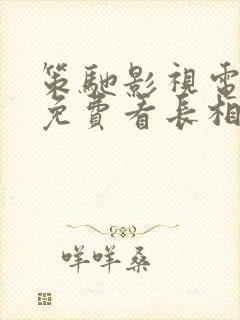 策馳影視電
免費看長相
咩咩桑